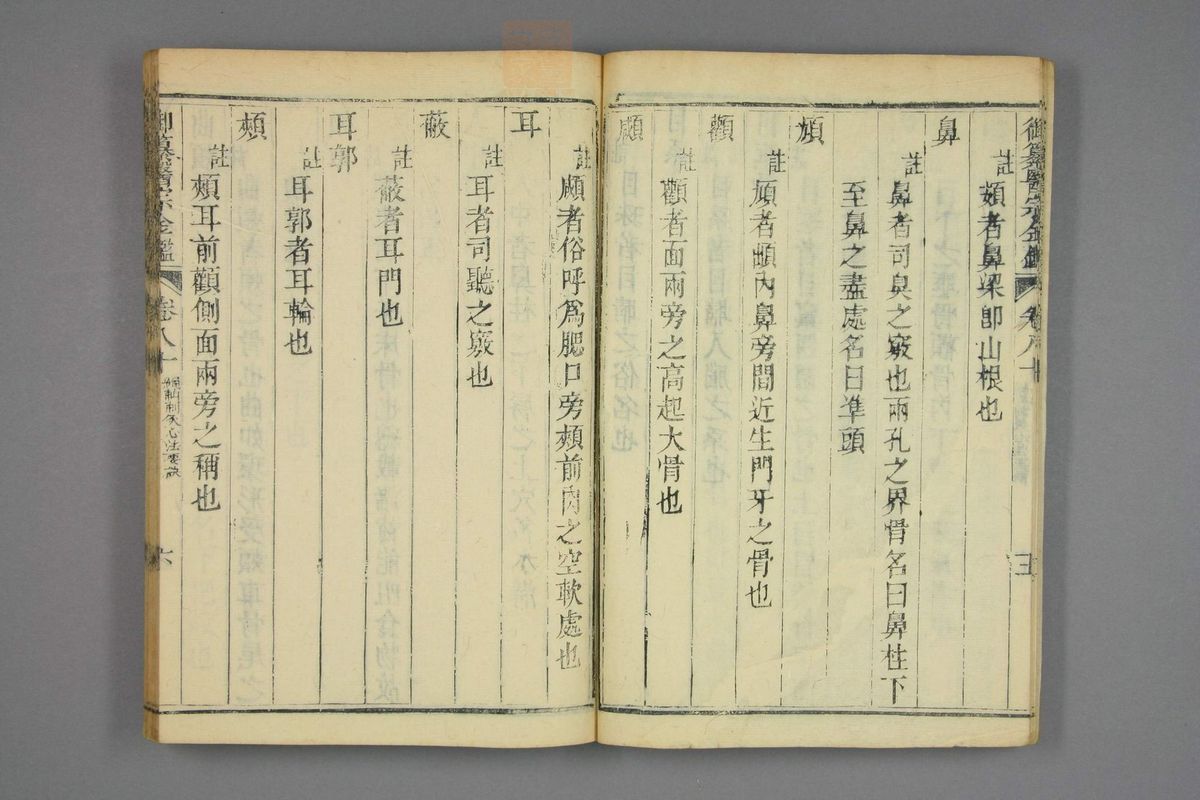 御纂醫宗金鑑 卷八十 五
註 頞者鼻梁卽山根也
鼻
註 鼻者司臭之竅也兩孔之界骨名曰鼻柱下
至鼻之盡處名曰準頭
䪼
註 䪼者䪼內鼻旁間近生門牙之骨也
顴
註 顴者面兩旁之高起大骨也
顑
註 顑者俗呼爲腮口旁頰前肉之空軟處也
耳
註 耳者司聽之竅也
蔽
註 蔽者耳門也
耳郭
註 耳郭者耳輪也
頰
註 頰耳前顴側面兩旁之稱也
御纂醫宗金鑑 卷八十 編輯刺灸心法要訣 六